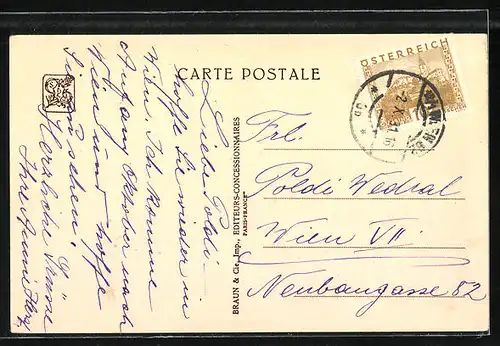 CARTE POSTALE
ÖSTERREICH
WIEN
2.X.31
Liebe Poldi
hoffe Sie wieder in
Wien. Ich komme
Anfang Oktober nach
Wien und hoffe
Sie zu sehen!
Herzliche Grüsse
Ihre
BRAUN & Cie, Imp., EDITEURS-CONCESSIONNAIRES
PARIS-FRANCE
Frl.
Poldi Wedral
Wien VII.
Neubaugasse 82